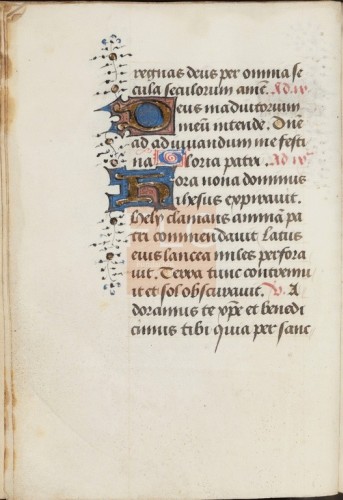 regnas deus per omnia se
cula seculorum amē. Ad ix
Deus in adiutorium
meū intende. Dñe
ad adiuuandum me festi
na Gloria patri. Ad ix
Hora nona dominus
ihesus expirauit.
hely clamans animā pa
tri commendauit Latus
eius lancea miles perfora
uit. Terra tunc contremu
it et sol obscurauit. V. A
doramus te xp̄e et benedi
cimus tibi Quia per sanc